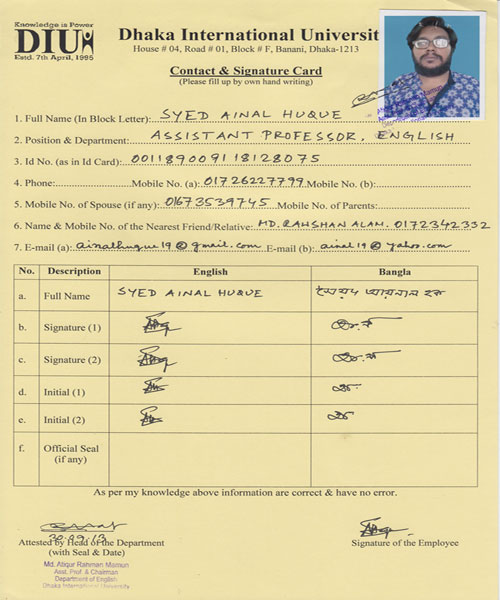 Knowledge is Power
DIU
Estd. 7th April, 1995
Dhaka International Universit
House # 04, Road # 01, Block # F, Banani, Dhaka-1213
Contact & Signature Card
(Please fill up by own hand writing)
1. Full Name (In Block Letter): SYED AINAL HUQUE
2. Position & Department: ASSISTANT PROFESSOR, ENGLISH
3. Id No. (as in Id Card): 001189009118128075
4. Phone: Mobile No. (a): 01726227799 Mobile No. (b):
5. Mobile No. of Spouse (if any): 01673539745 Mobile No. of Parents:
6. Name & Mobile No. of the Nearest Friend/Relative: MD. RAHSHAN ALAM. 0172342332
7. E-mail (a): ainalhuque19@gmail.com E-mail (b): ainal19@yahoo.com
No. Description English Bangla
a. Full Name SYED AINAL HUQUE সৈয়দ আয়নাল হক
b. Signature (1)
c. Signature (2)
d. Initial (1)
e. Initial (2)
f. Official Seal (if any)
As per my knowledge above information are correct & have no error.
30.09.13
Attested by Head of the Department Signature of the Employee
(with Seal & Date)
Md. Atiqur Rahman Mamun
Asst. Prof. & Chairman
Department of English
Dhaka International University